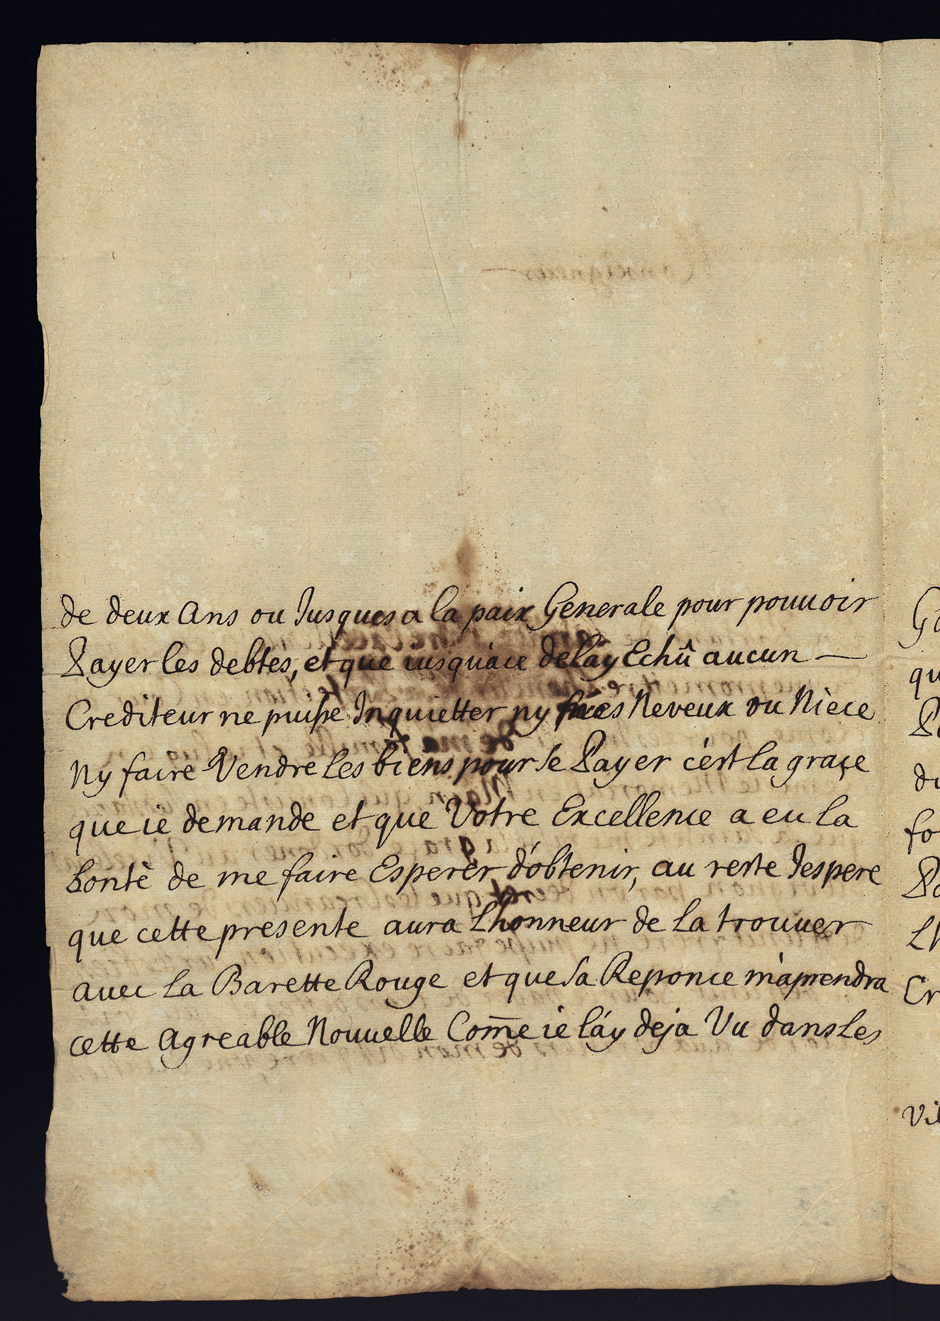 de deux Ans ou Jusques a la paix Generale pour pouuoir
Payer les debtes, et que iusqu'a ce delay Echû aucun —
Crediteur ne puisse Inquietter ny Neveux ou Nièce
Ny faire Vendre les biens pour se Payer c'est la graçe
que ie demande et que Votre Excellence a eu la
bontè de me faire Esperer d'obtenir, au reste Jespere
que cette presente aura Lhonneur de la trouuer
auec la Barette Rouge et que sa Reponce m'aprendra
cette Agreable Nouuelle Com̄e ie láy deja Vu dans Les